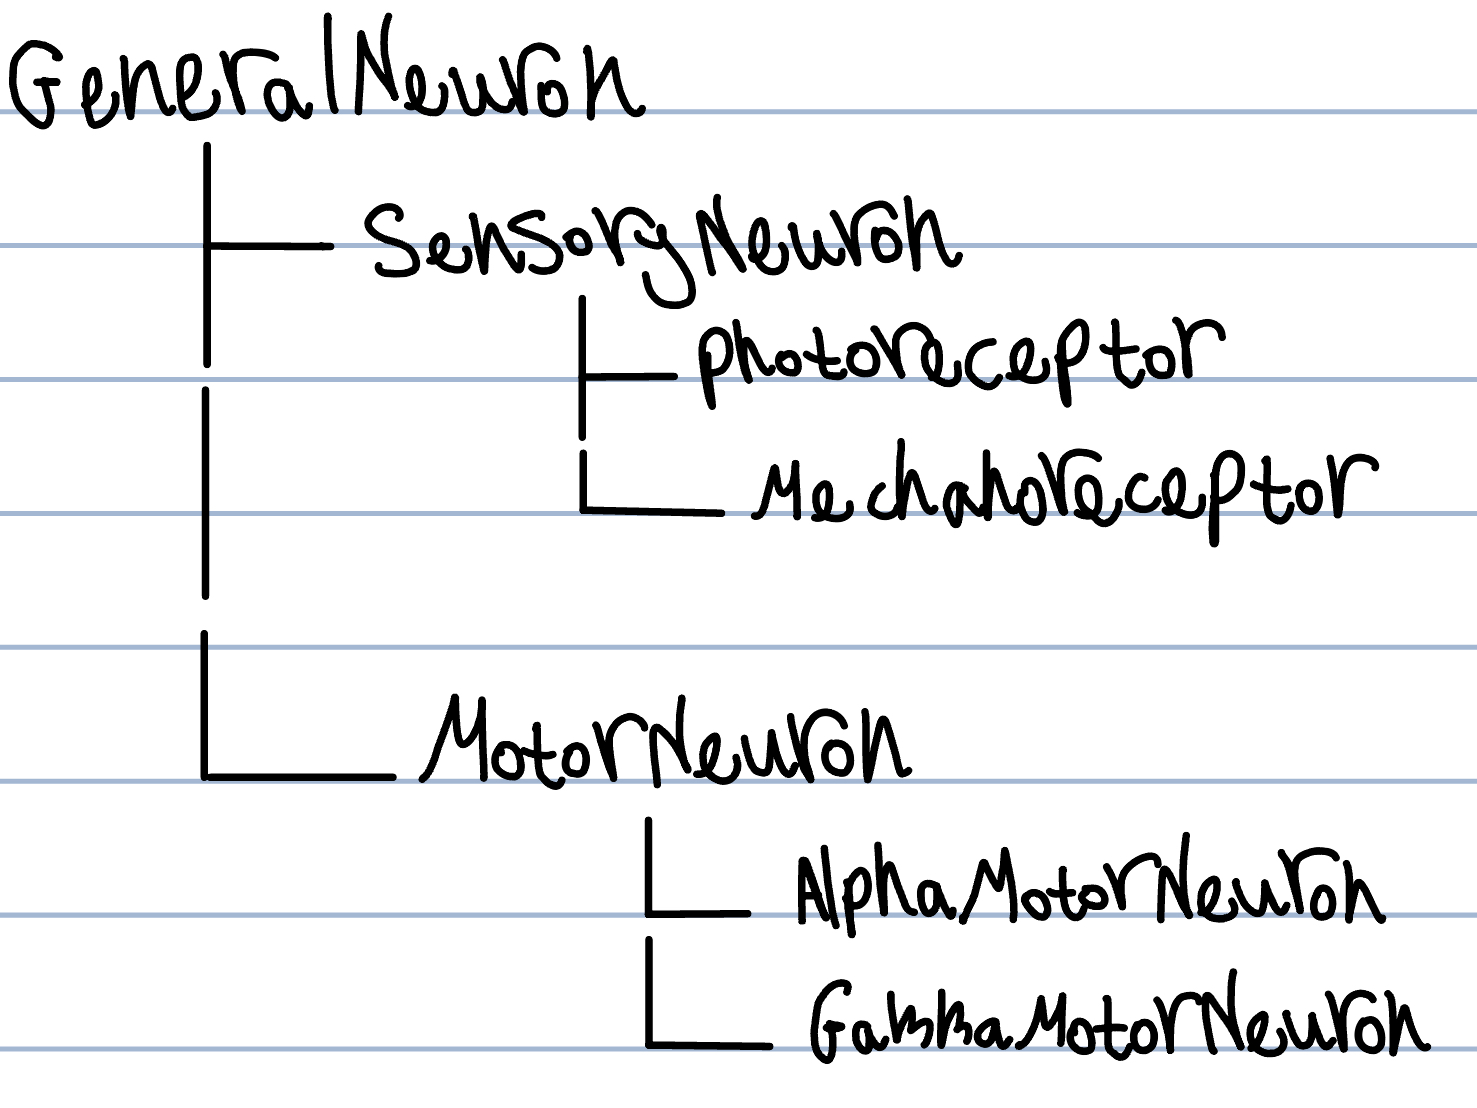 GeneralNeuron
SensoryNeuron
photoreceptor
Mechanoreceptor
MotorNeuron
AlphaMotorNeuron
GammaMotorNeuron